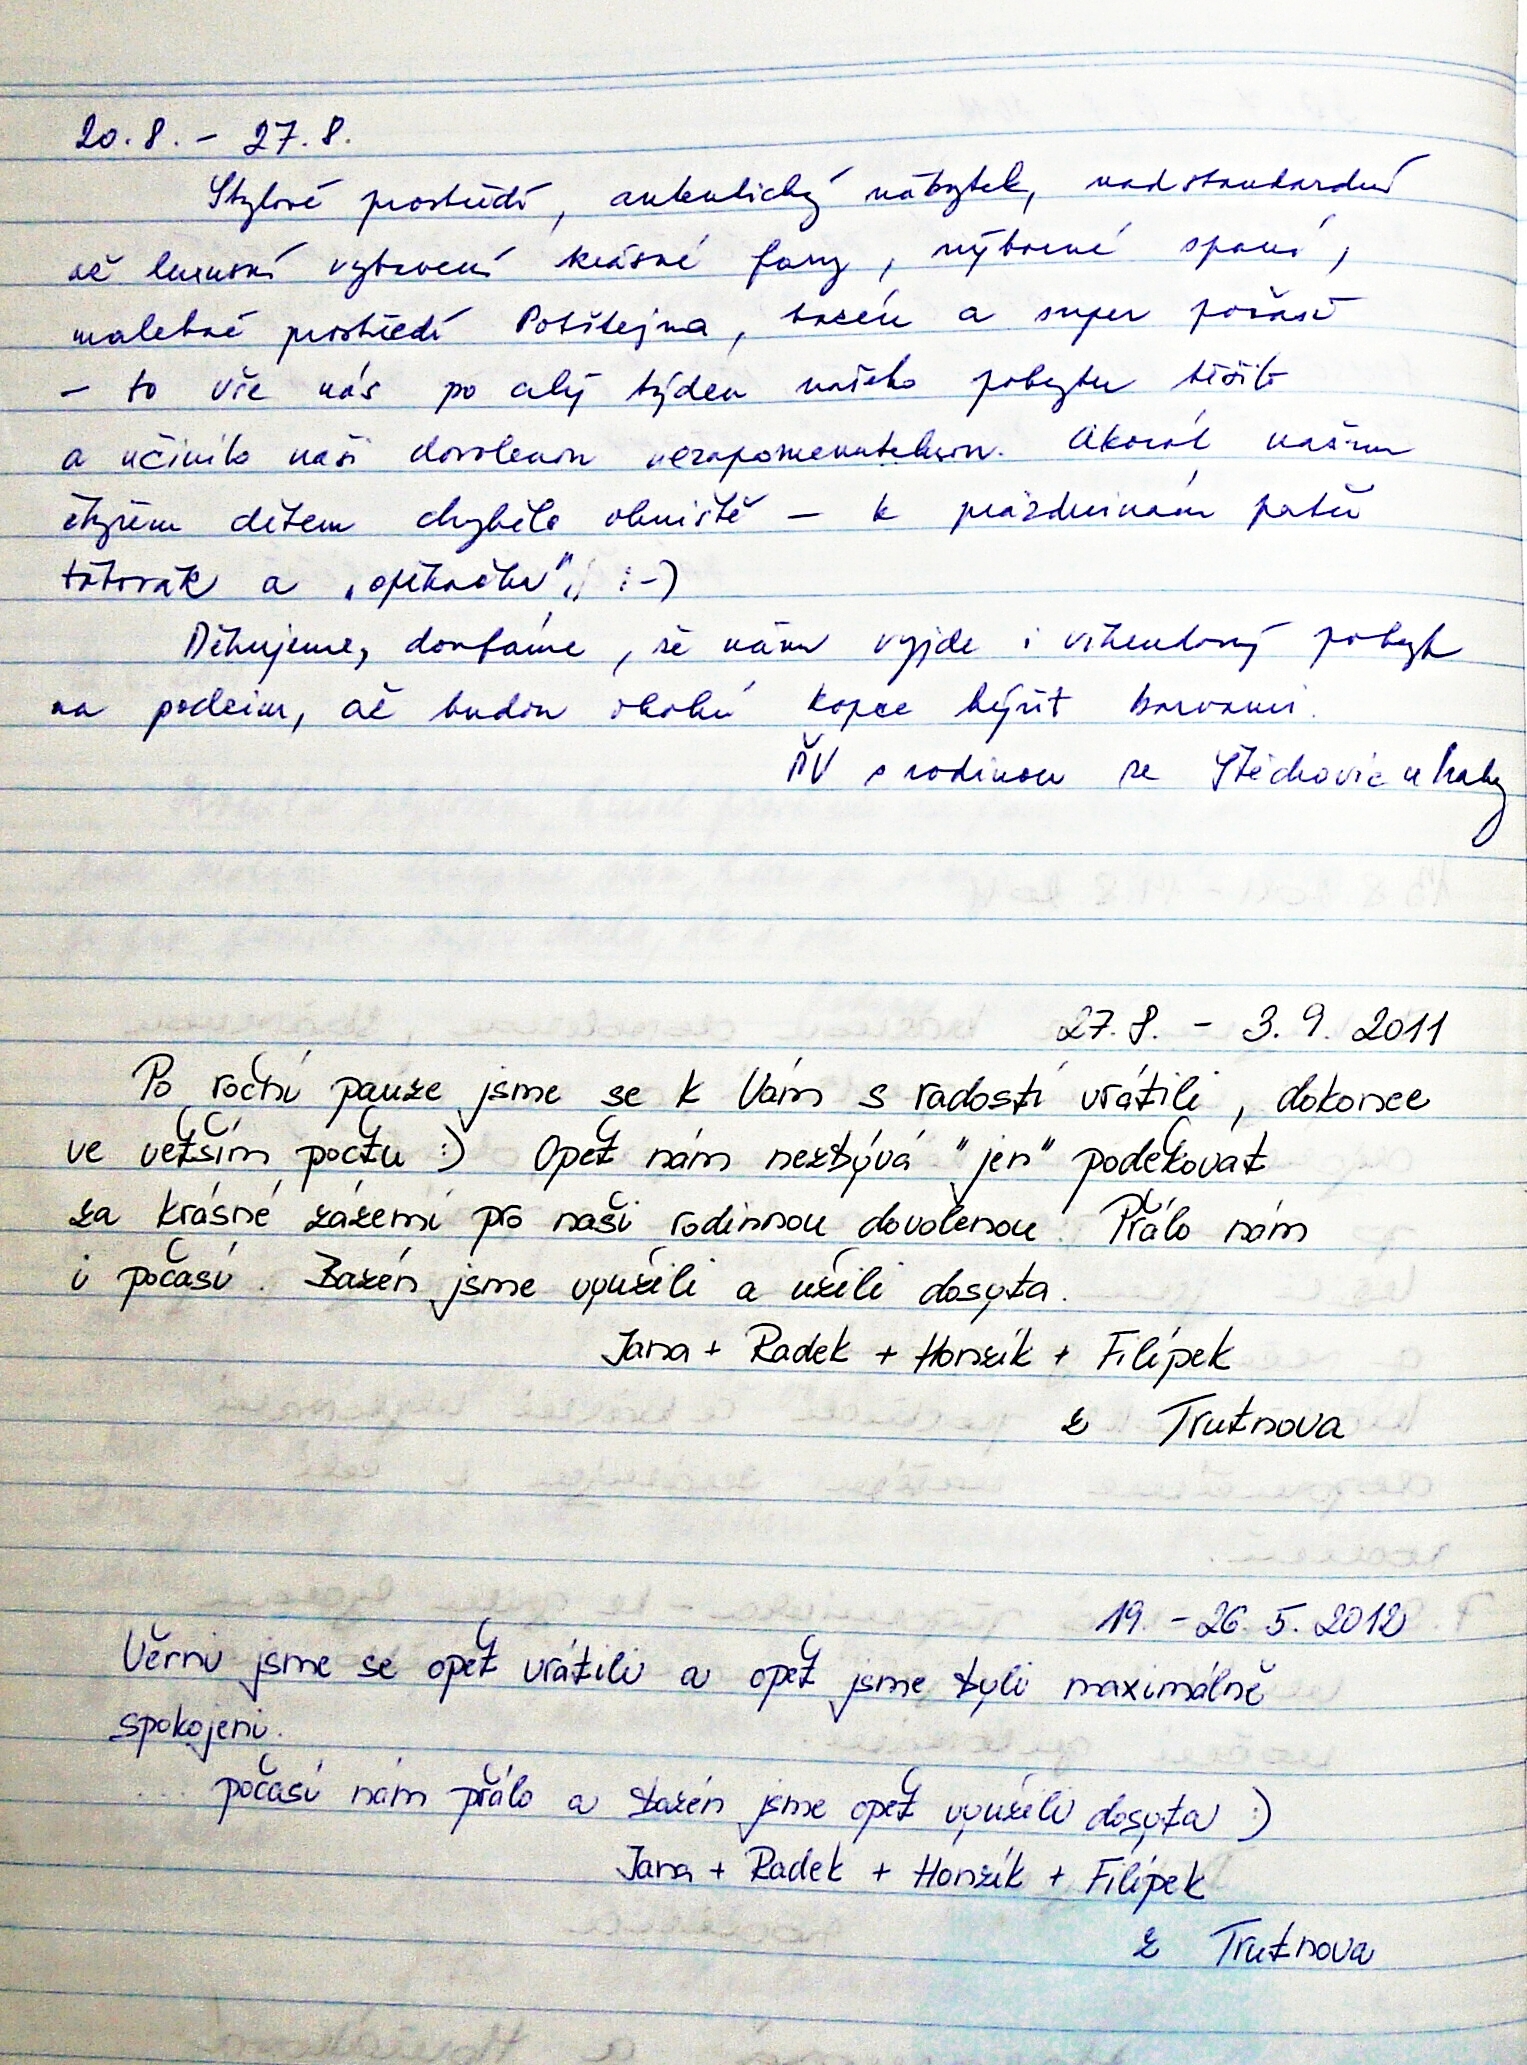 20.8. – 27.8.
Stylové prostředí, autentický nábytek, nadstandardní
až luxusní vybavení krásné fary, výborné spaní,
malebné prostředí Potštejna, bazén a super počasí
– to vše nás po celý týden našeho pobytu těšilo
a učinilo naši dovolenou nezapomenutelnou. Akorát našim
čtyřem dětem chybělo ohniště – k prázdninám patří
táborák a „opékačka" :-)
Děkujeme, doufáme, že nám vyjde i víkendový pobyt
na podzim, až budou okolní kopce hýřit barvami.
ŘV s rodinou ze Štěchovic u Prahy
27.8. – 3.9. 2011
Po roční pauze jsme se k Vám s radostí vrátili, dokonce
ve větším počtu :) Opět nám nezbývá "jen" poděkovat
za krásné zázemí pro naši rodinnou dovolenou. Přálo nám
i počasí. Bazén jsme využili a užili dosyta.
Jana + Radek + Honzík + Filípek
z Trutnova
19. – 26. 5. 2012
Věrni jsme se opět vrátili a opět jsme byli maximálně
spokojeni.
... počasí nám přálo a bazén jsme opět využili dosyta :)
Jana + Radek + Honzík + Filípek
z Trutnova